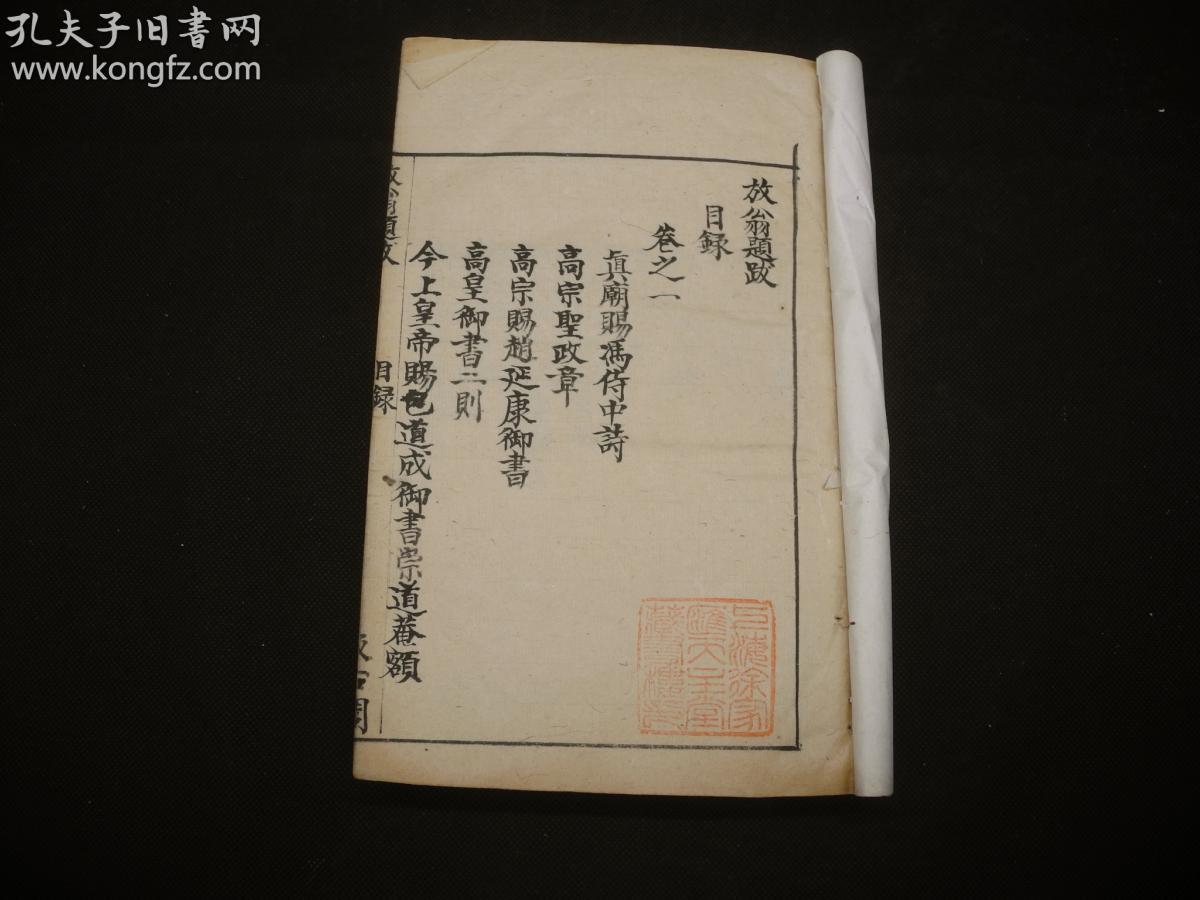 孔夫子旧书网
www.kongfz.com
放翁題跋
目録
卷之一
眞廟賜馮侍中詩
高宗聖政章
高宗賜趙延康御書
高皇御書二則
今上皇帝賜包道成御書崇道菴額
放翁題跋
目録
汲古閣
上海徐家
匯天主堂
藏書樓印